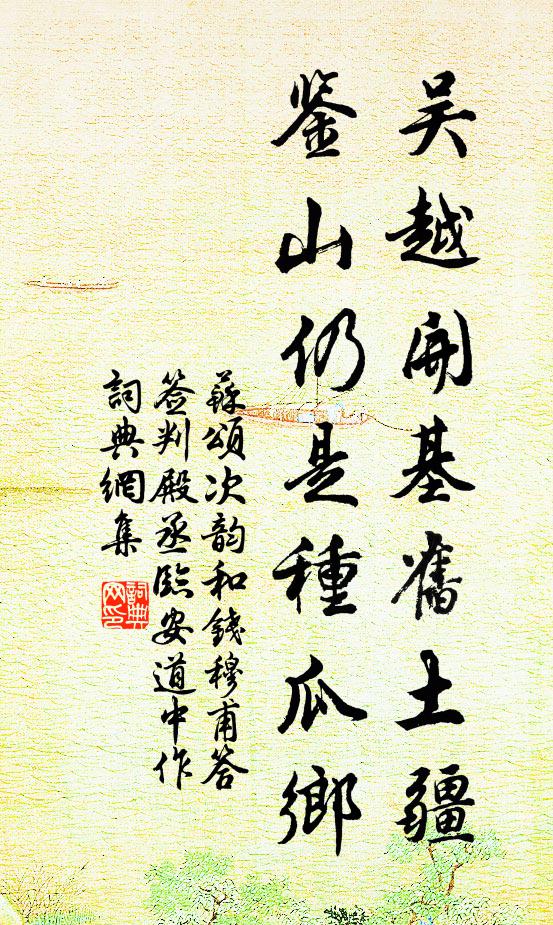 吴越開基舊土疆
鉴山仍是種瓜鄉
蘇頌次韵和錢穆甫答
签判殿丞臨安道中作
詞典網集
詞典
网印